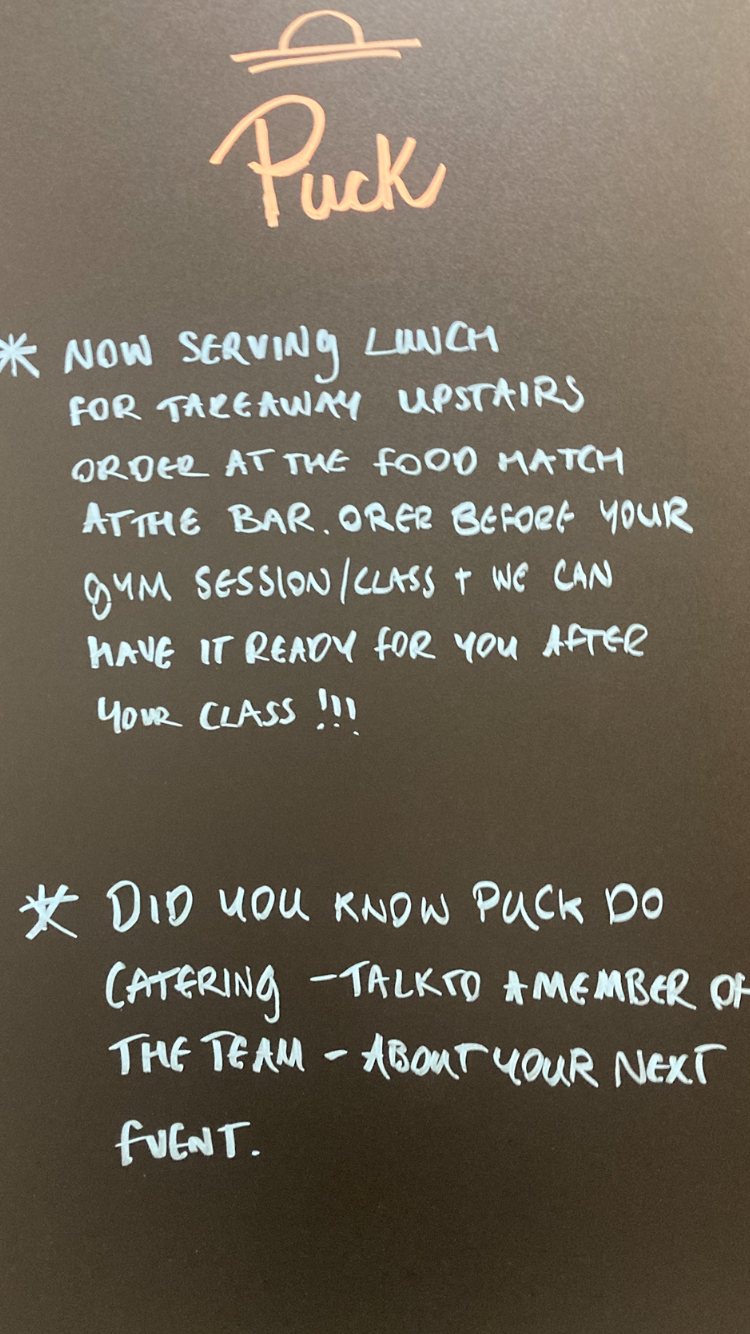 Puck
* NOW SERVING LUNCH
FOR TAKEAWAY UPSTAIRS
ORDER AT THE FOOD HATCH
AT THE BAR. ORER BEFORE YOUR
GYM SESSION/CLASS + WE CAN
HAVE IT READY FOR YOU AFTER
YOUR CLASS !!!
* DID YOU KNOW PUCK DO
CATERING - TALK TO A MEMBER OF
THE TEAM - ABOUT YOUR NEXT
EVENT.